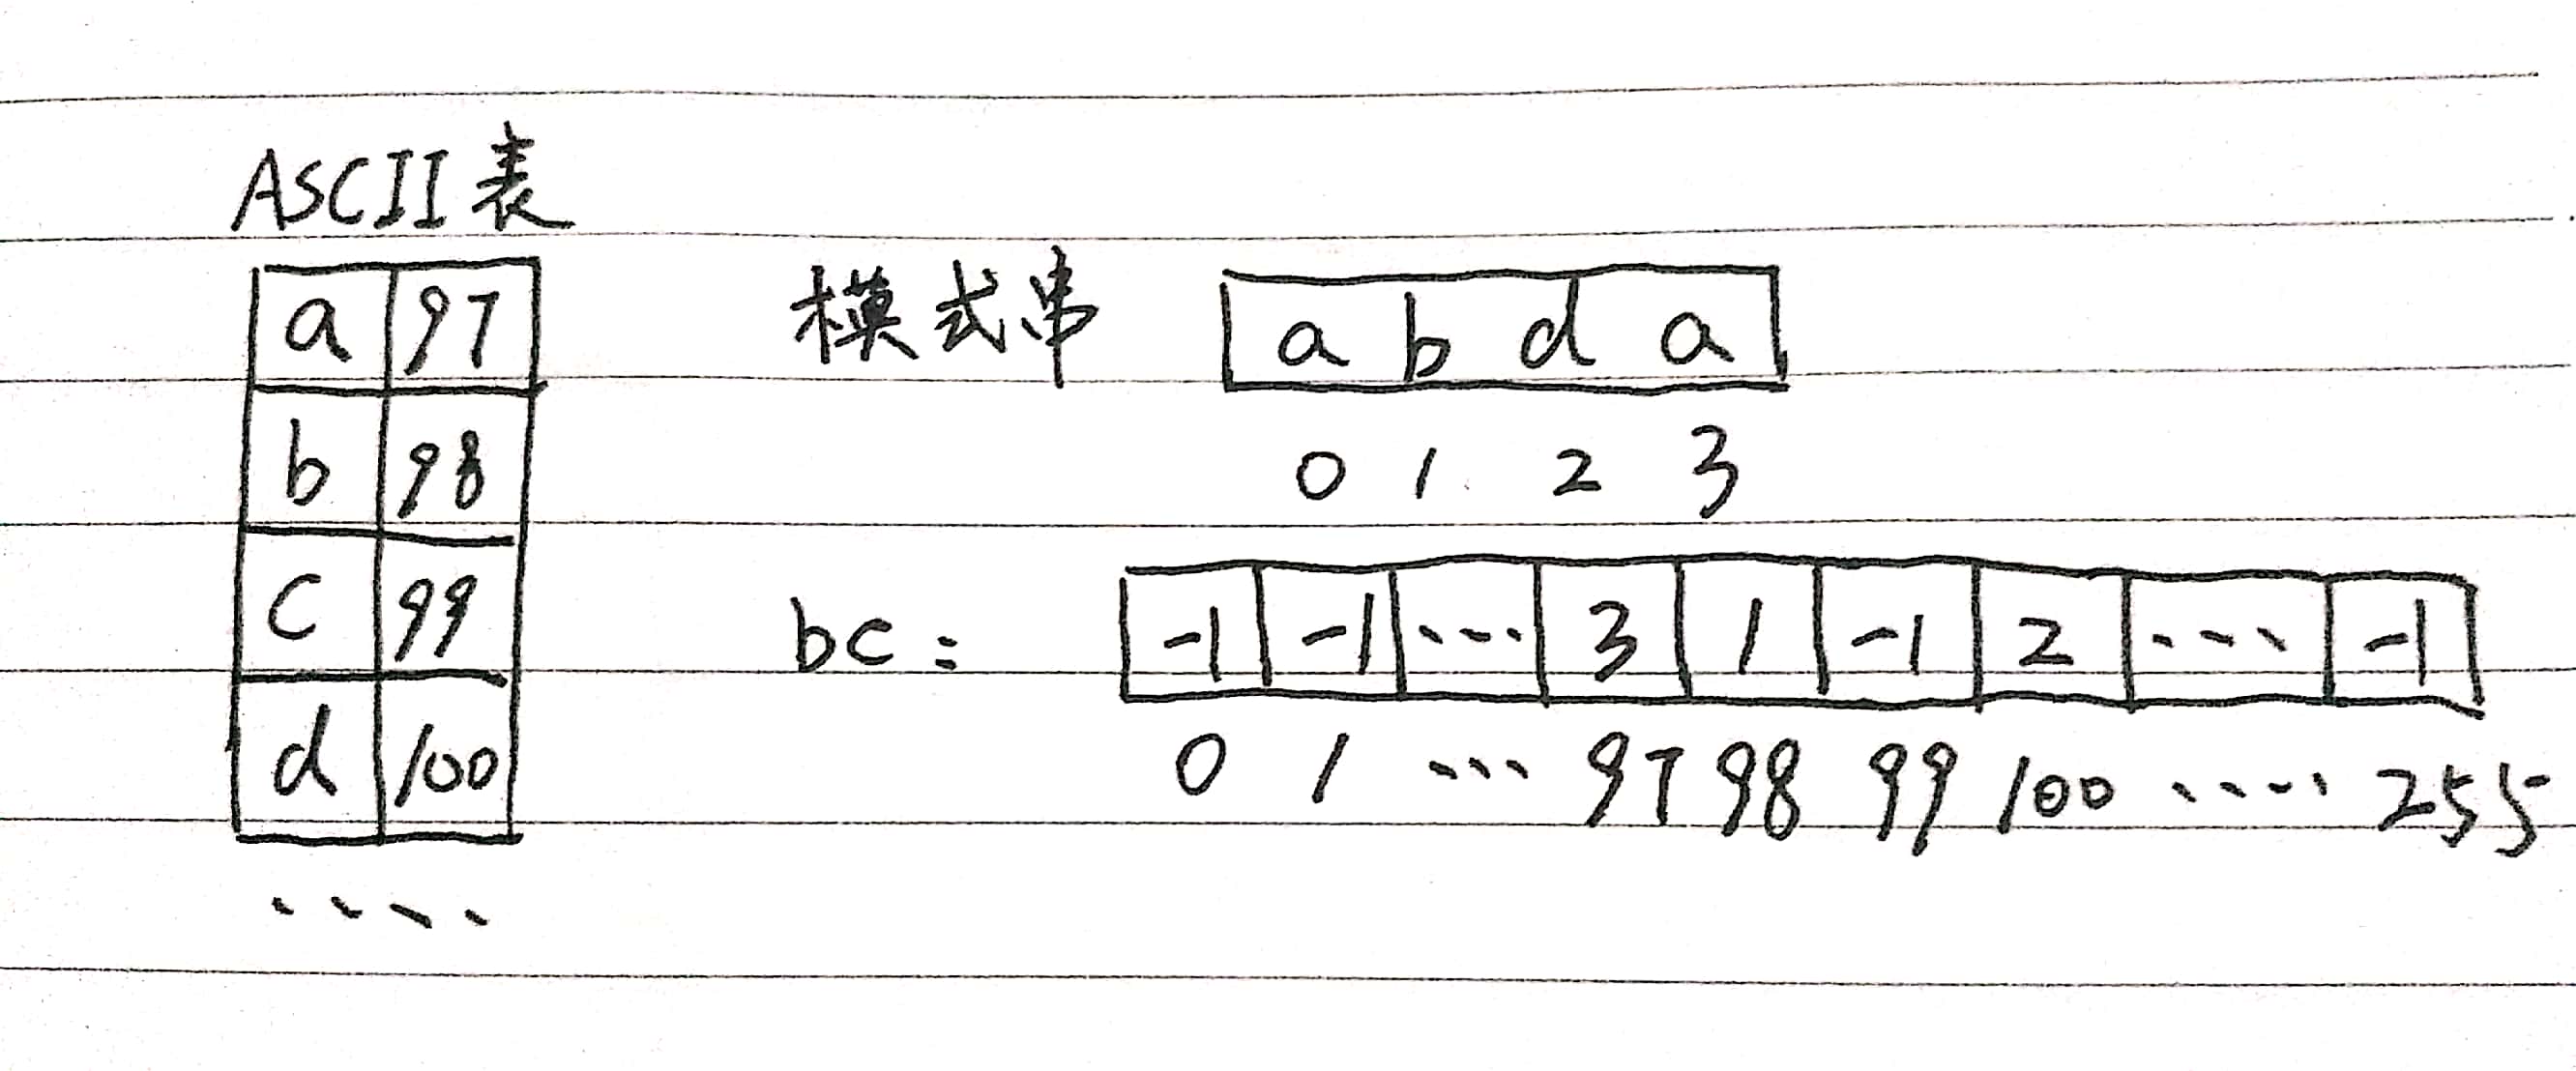 ASCII表
a 97
b 98
c 99
d 100
....
模式串 a b d a
0 1 2 3
bc: -1 -1 ... 3 1 -1 2 ... -1
0 1 ... 97 98 99 100 .... 255